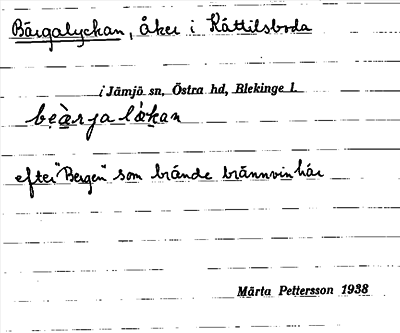 Bärgalyckan, åker i Kättilsboda
i Jämjö sn, Östra hd, Blekinge l.
bẹàrja lǻkan
efter "Bergen" som brände brännvin här
Märta Pettersson 1938